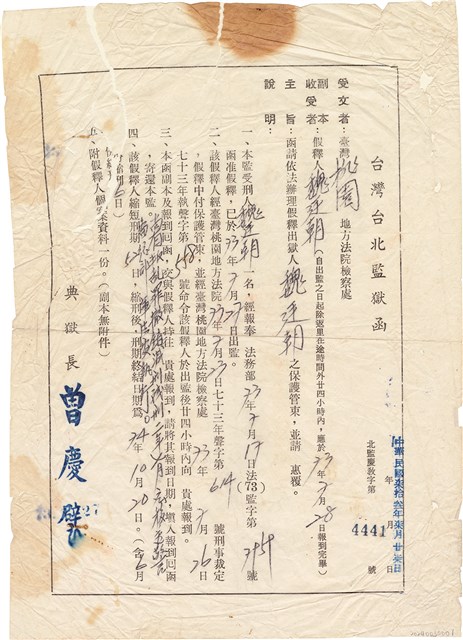 台灣台北監獄函
中華民國柒拾叁年柒月廿柒日
北監慶教字第 4441 號
受文者：臺灣桃園地方法院檢察處
副本
收受者：假釋人魏廷朝（自出監之日起除返里在途時間外廿四小時內，應於73年7月28日報到完畢）
主旨：函請依法辦理假釋出獄人魏廷朝之保護管束，並請 惠覆。
說明：
一、本監受刑人魏廷朝一名，經報奉 法務部73年7月17日法(73)監字第 號
函准假釋，已於73年7月27日出監。
二、該假釋人經臺灣桃園地方法院73年7月23日七十三年聲字第614號刑事裁定
假釋中付保護管束，並經臺灣桃園地方法院檢察處73年7月26日
七十三年執聲字第598號命令該假釋人於出監後廿四小時內向 貴處報到。
三、本函副本及報到回函，交與假釋人持往 貴處報到，請將其報到日期，填入報到回函
，寄還本監。
四、該假釋人縮短刑期 日，縮刑後，刑期終結日期為74年10月20日。(含 月
五、附假釋人個案資料一份。（副本無附件）
典獄長 曾慶璧